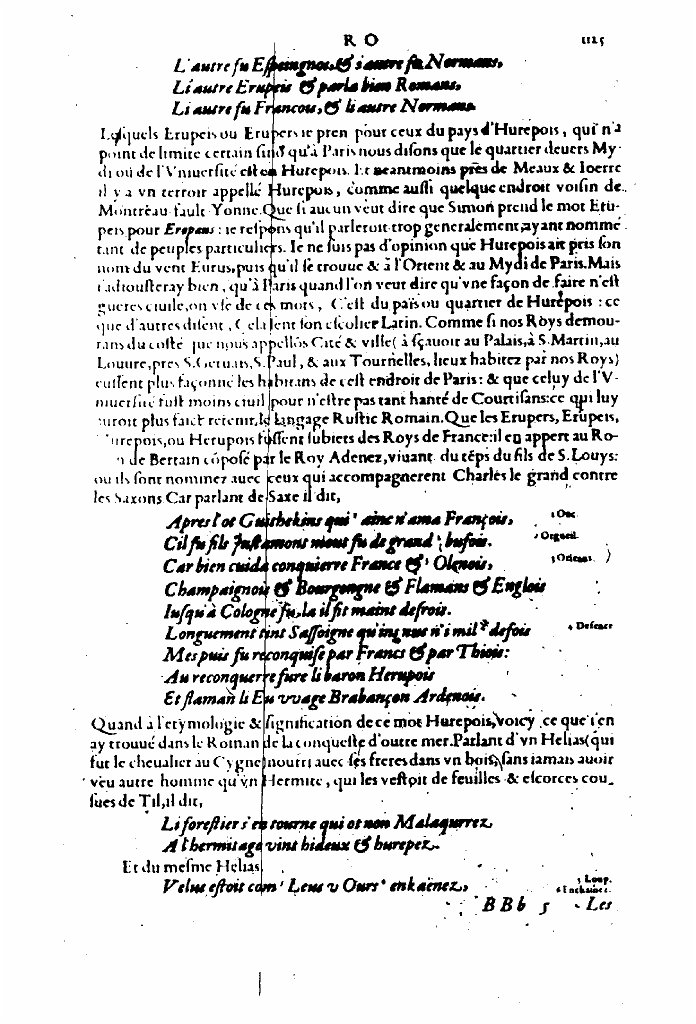 R O 1125
L'autre fu Espeingnos, & s'autre fu Normans,
Li autre Erupeis & parla bien Romans,
Li autre fu Francou, & li autre Normans.
Lesquels Erupeis ou Erupers ie pren pour ceux du pays d'Hurepois, qui n'a
point de limite certain sinõ qu'à Paris nous disons que le quartier deuers My-
di ou de l'Vniuersité est en Hurepois. Et neantmoins près de Meaux & Ioerre
il y a vn terroir appellé Hurepois, comme aussi quelque endroit voisin de
Montreau fault Yonne. Que si aucun veut dire que Simon prend le mot Eru-
peis pour Eropans : ie respons qu'il parleroit trop generalement, ayant nomme
tant de peuples particuliers. Ie ne suis pas d'opinion que Hurepois ait pris son
nom du vent Eurus, puis qu'il se trouue & à l'Orient & au Mydi de Paris. Mais
i'adiousteray bien, qu'à Paris quand l'on veut dire qu'vne façon de faire n'est
gueres ciuile, on vse de ces mots, C'est du païs ou quartier de Hurepois : ce
que d'autres disent, Cela sent son escolier Latin. Comme si nos Roys demou-
rans du costé que nous appellõs Cité & ville (à sçauoir au Palais, à S. Martin, au
Louure, pres S. Geruais, S. Paul, & aux Tournelles, lieux habitez par nos Roys)
eussent plus façonné les habitans de cest endroit de Paris : & que celuy de l'V-
niuersité fust moins ciuil pour n'estre pas tant hanté de Courtisans : ce qui luy
auroit plus faict retenir, le langage Rustic Romain. Que les Erupers, Erupeis,
Hurepois, ou Herupois fussent subiets des Roys de France : il en appert au Ro-
n de Bertain cõposé par le Roy Adenez, viuant du tẽps du fils de S. Louys :
ou ils sont nominez auec ceux qui accompagnerent Charles le grand contre
les Saxons. Car parlant de Saxe il dit,
Apres l'ot Guithekins qui ainc n'ama François, Onc
Cil fu fils Justamons mout fu de grand bufois. Orgueil
Car bien cuida conquierre France & Olenois, Orleans
Champaignois & Bourgongne & Flamans & Englois
Iusqu'à Cologne fu, la il fit maint desrois.
Longuement tint Sassoigne qu'inqnue n'i mil defois 4 Defence
Mes puis fu reconquise par Francs & par Thiois :
Au reconquerre fure li baron Herupois
Et flaman li Eu vvage Brabançon Ardenois.
Quand à l'etymologie & signification de ce mot Hurepois, voicy ce que i'en
ay trouué dans le Roman de la conqueste d'outre mer. Parlant d'vn Helias (qui
fut le cheualier au Cygne) nourri auec ses freres dans vn bois, sans iamais auoir
veu autre homme qu'vn Hermite, qui les vestoit de feuilles & escorces cou-
sues de Til, il dit,
Li forestier s'en tourne qui ot non Malaquerrez
A l'hermitage vint hideux & hurepez.
Et du mesme Helias
Velus estois com Leus v Ours enkaenez, Loup. Enchainez.
BBb 5 Les